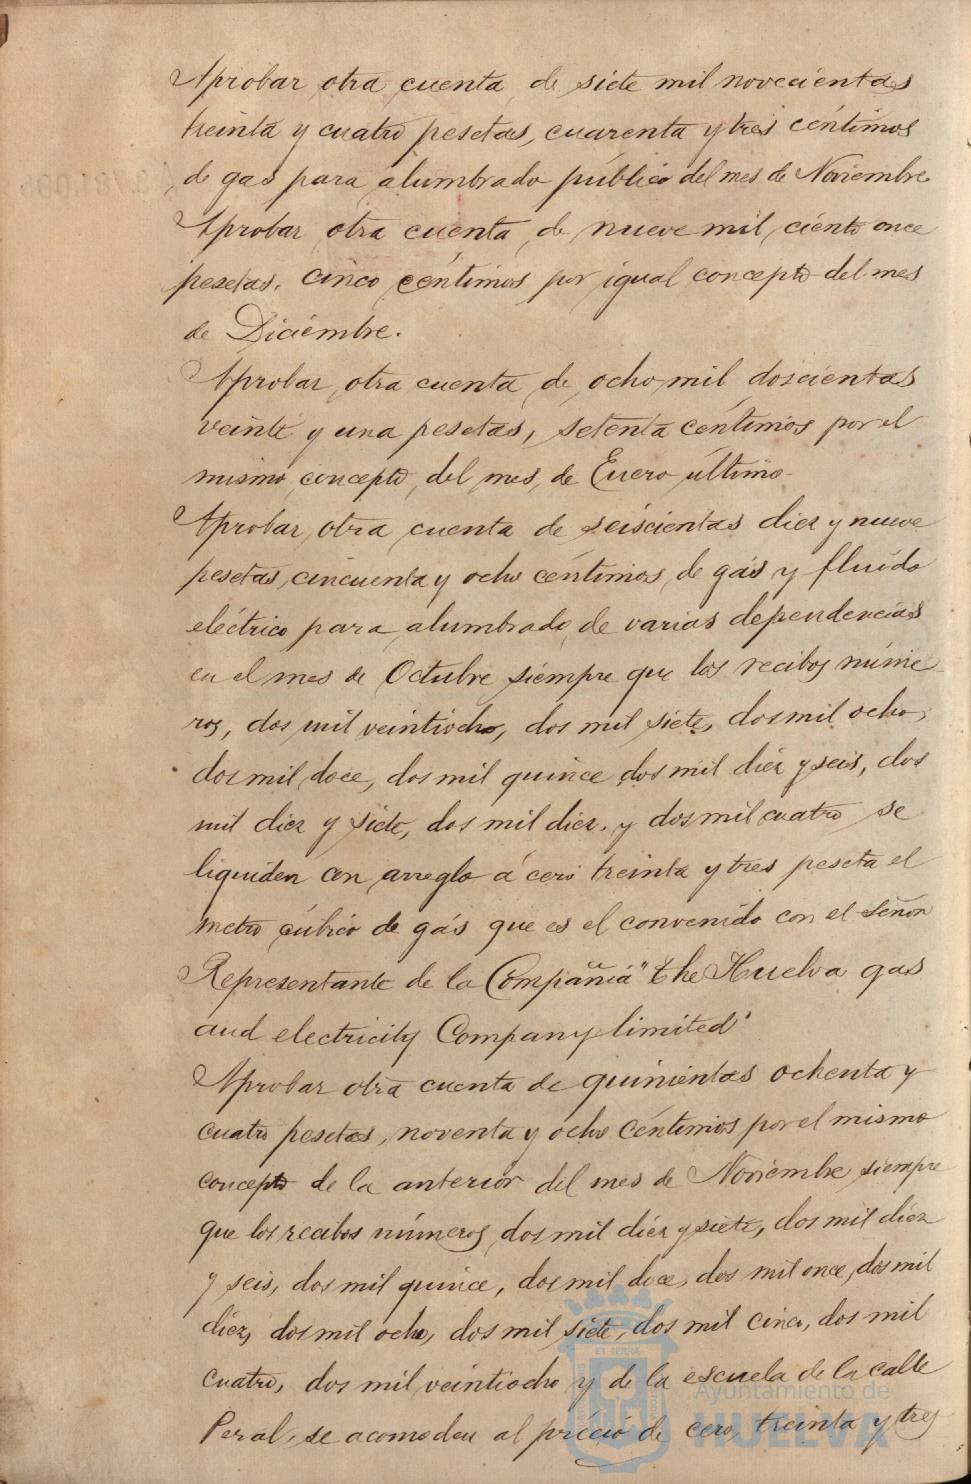 Aprobar otra cuenta de siete mil novecientas
treinta y cuatro pesetas, cuarenta y tres céntimos
de gas para alumbrado público del mes de Noviembre
Aprobar otra cuenta de nueve mil ciento once
pesetas, cinco céntimos por igual concepto del mes
de Diciembre.
Aprobar otra cuenta de ocho mil doscientas
veinte y una pesetas, setenta céntimos por el
mismo concepto del mes de Enero último.
Aprobar otra cuenta de seiscientas diez y nueve
pesetas cincuenta y ocho céntimos de gás y fluido
eléctrico para alumbrado de varias dependencias
en el mes de Octubre siempre que los recibos núme-
ros, dos mil veintiocho, dos mil siete, dos mil ocho,
dos mil doce, dos mil quince dos mil diéz y seis, dos
mil diez y siete, dos mil diez, y dos mil cuatro se
liquiden con arreglo á cero treinta y tres peseta el
metro cúbico de gás que es el convenido con el Señor
Representante de la Compañia "the Huelva gas
and electricity Company limited"
Aprobar otra cuenta de quinientas ochenta y
cuatro pesetas, noventa y ocho céntimos por el mismo
concepto de la anterior del mes de Noviembre siempre
que los recibos números dos mil diéz y siete, dos mil diez
y seis, dos mil quince, dos mil doce, dos mil once, dos mil
diez, dos mil ocho, dos mil siete, dos mil cinco, dos mil
cuatro, dos mil veintiocho y de la escuela de la calle
Peral, se acomoden al precio de cero, treinta y tres
Ayuntamiento de
HUELVA